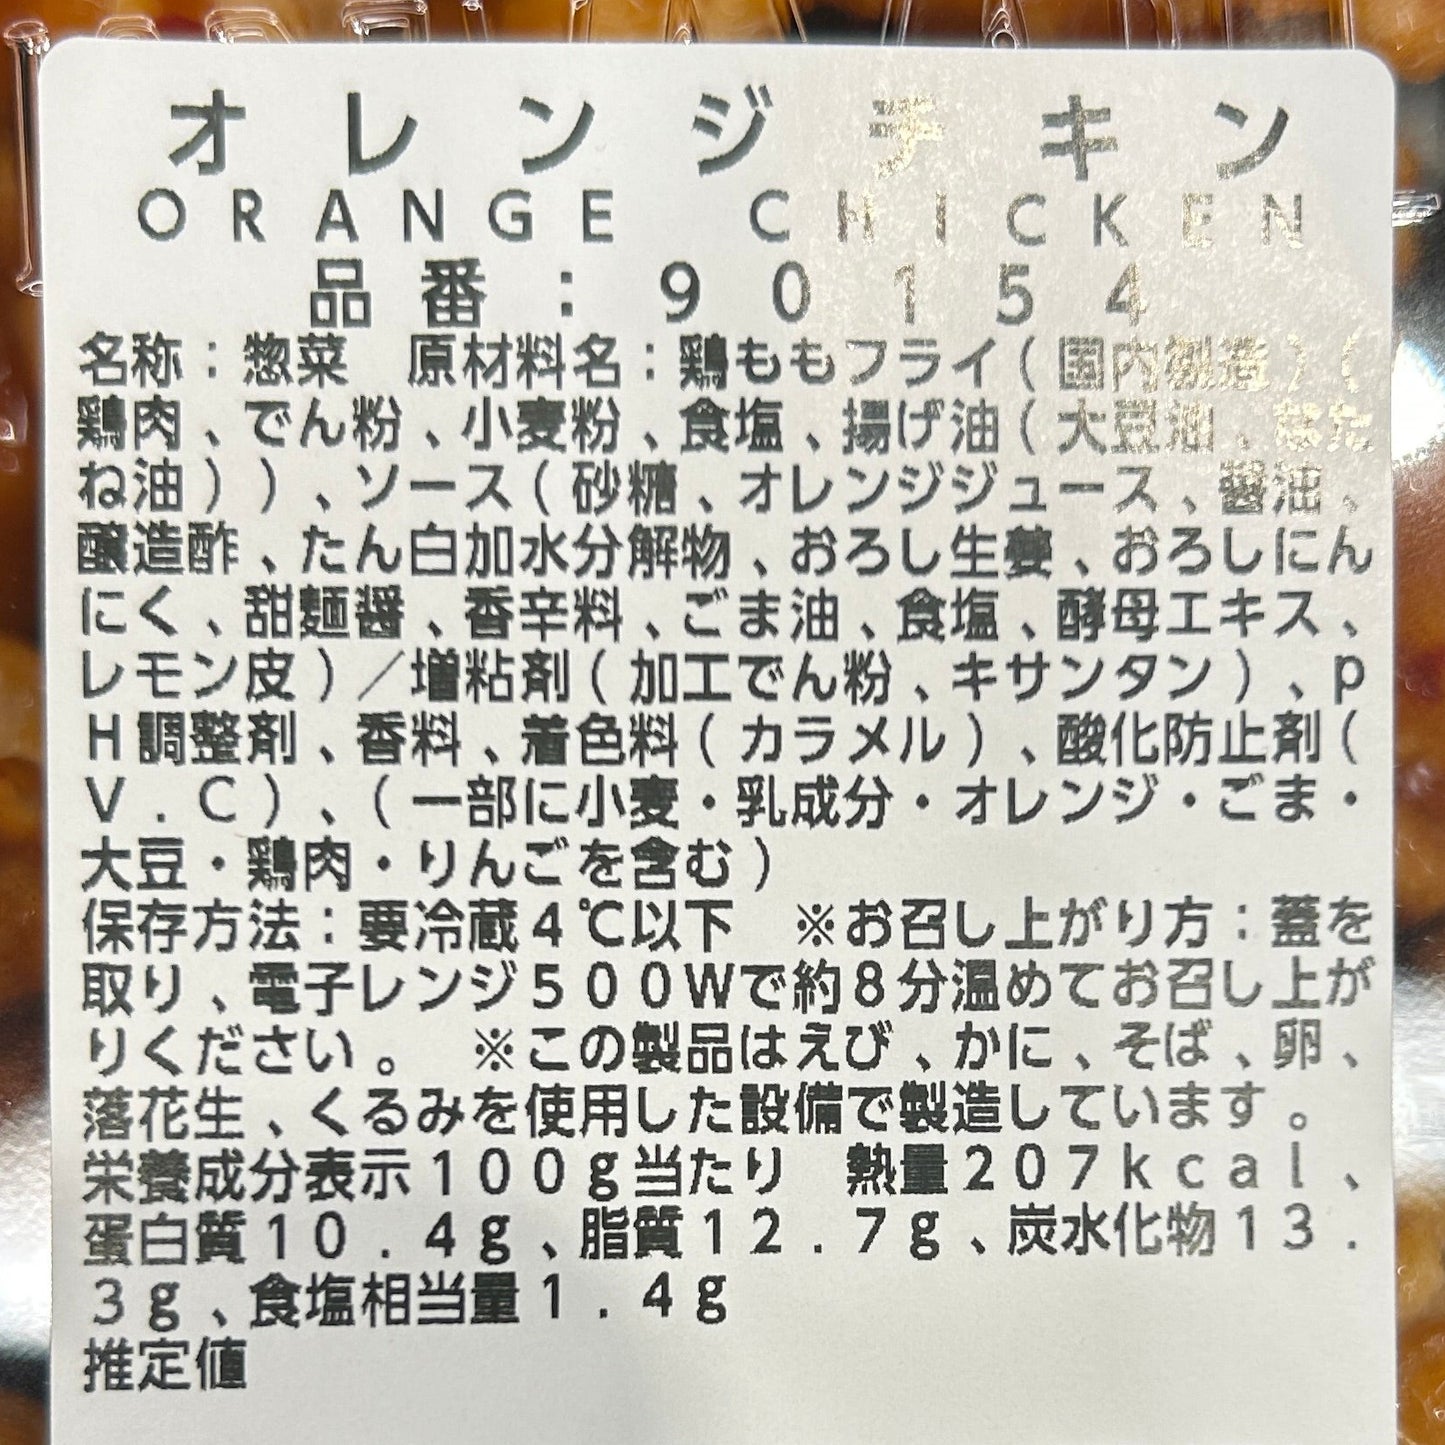 オレンジチキン
ORANGE CHICKEN
品番:90154
名称:惣菜 原材料名:鶏ももフライ(国内製造)(
鶏肉、でん粉、小麦粉、食塩、揚げ油(大豆油、なた
ね油))、ソース(砂糖、オレンジジュース、醤油、
醸造酢、たん白加水分解物、おろし生姜、おろしにん
にく、甜麺醤、香辛料、ごま油、食塩、酵母エキス、
レモン皮)/増粘剤(加工でん粉、キサンタン)、p
H調整剤、香料、着色料(カラメル)、酸化防止剤(
V.C)、(一部に小麦・乳成分・オレンジ・ごま・
大豆・鶏肉・りんごを含む)
保存方法:要冷蔵4℃以下 ※お召し上がり方:蓋を
取り、電子レンジ500Wで約8分温めてお召し上が
りください。 ※この製品はえび、かに、そば、卵、
落花生、くるみを使用した設備で製造しています。
栄養成分表示100g当たり 熱量207kcal、
蛋白質10.4g、脂質12.7g、炭水化物13.
3g、食塩相当量1.4g
推定値